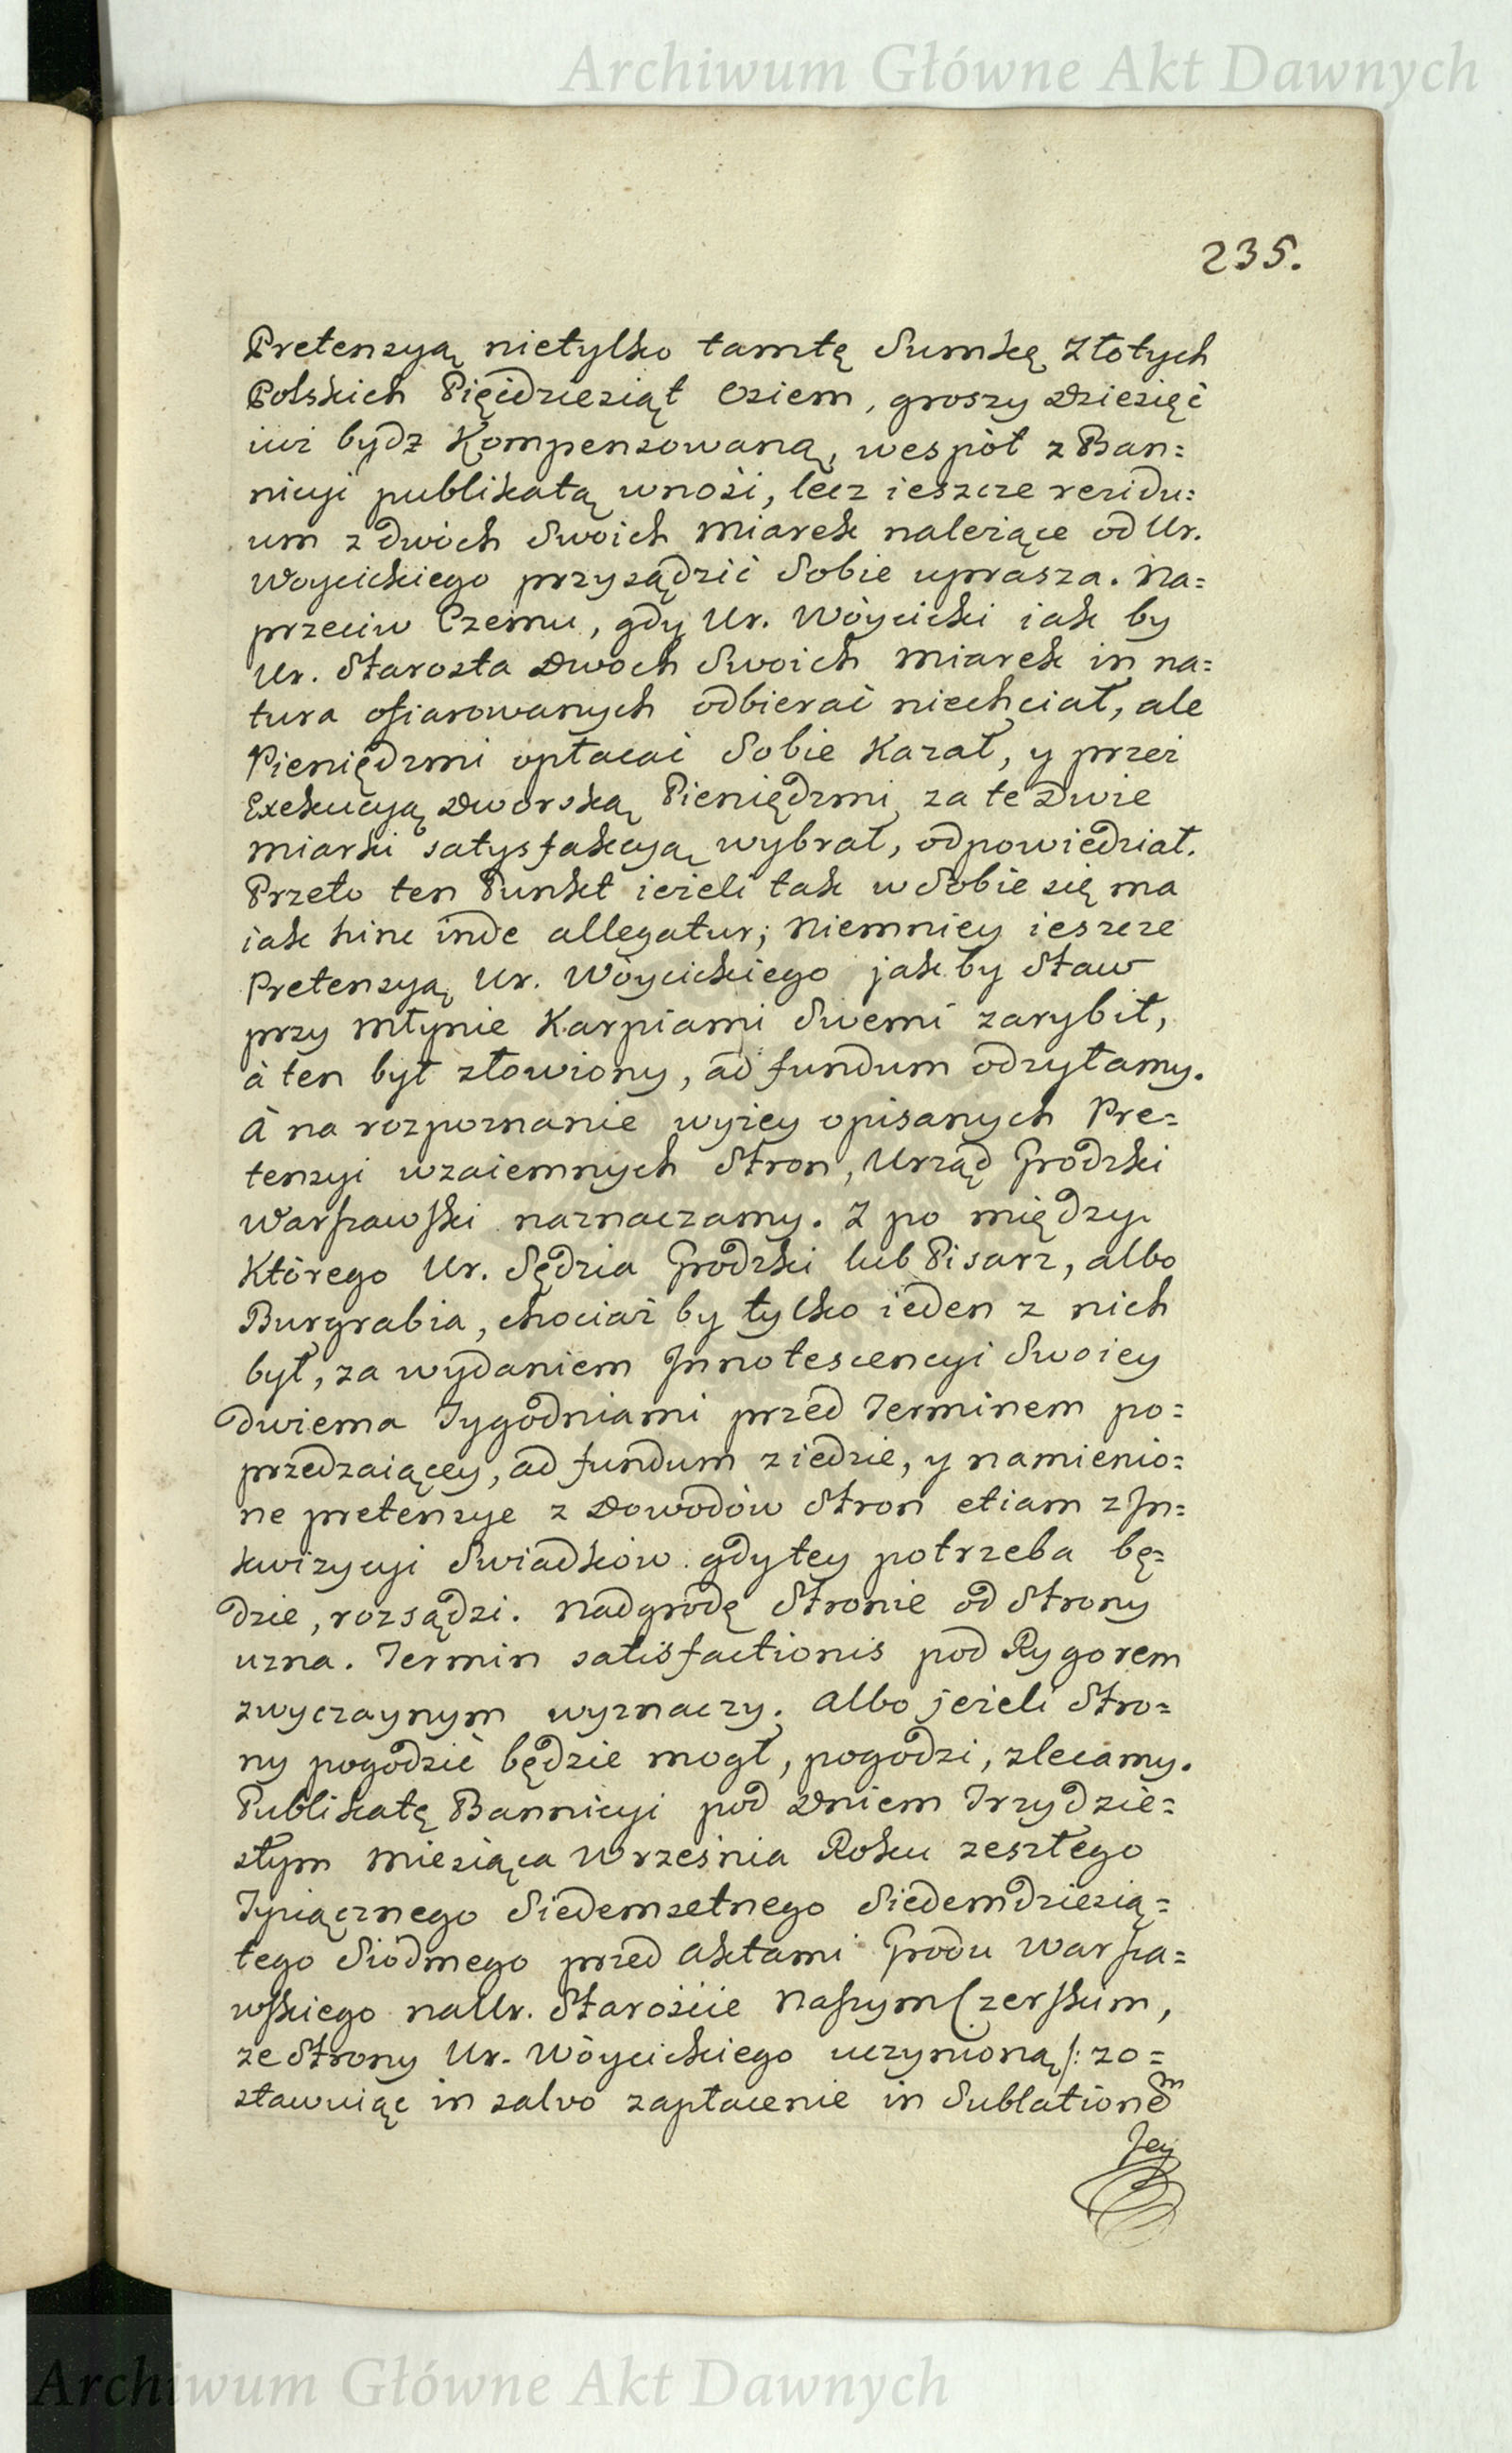 Archiwum Główne Akt Dawnych
235.
Pretensyą nietylko tamtę Sumkę Złotych
Polskich Pięćdziesiąt Osiem, groszy Dziesięć
iuż bydz Kompensowaną, wespół z Ban=
nicyi publikatą wnosi, lecz ieszcze residu=
um z dwóch Swoich Miarek należące od Ur.
Woycickiego przysądzić Sobie uprasza. Na=
przeciw Czemu, gdy Ur. Wóycicki iak by
Ur. Starosta Dwoch Swoich Miarek in na=
tura ofiarowanych odbierać niechciał, ale
Pieniędzmi opłacać Sobie Kazał, y przez
Exekucyą Dworską Pieniędzmi za te Dwie
Miarki satysfakcyą wybrał, odpowiedział.
Przeto ten Punkt ieżeli tak w Sobie się ma
iak hinc inde allegatur; Niemniey ieszcze
Pretensyą Ur. Wóycickiego jak by Staw
przy Młynie Karpiami Swemi zarybił,
à ten był złowiony, ad fundum odsyłamy.
A na rozpoznanie wyżey opisanych Pre=
tensyi wzaiemnych Stron, Urząd Grodzki
Warszawski naznaczamy. Z po między
Którego Ur. Sędzia Grodzki lub Pisarz, albo
Burgrabia, chociaż by tylko ieden z nich
był, za wydaniem Jnnotescencyi Swoiey
dwiema Tygodniami przed Terminem po=
przedzaiącey, ad fundum ziedzie, y namienio=
ne pretensye z Dowodów Stron etiam z Jn=
kwizycyi Swiadków gdy tey potrzeba bę=
dzie, rozsądzi. Nadgrodę Stronie od Strony
uzna. Termin satisfactionis pod Rygorem
zwyczaynym wyznaczy. Albo jeżeli Stro=
ny pogodzić będzie mogł, pogodzi, zlecamy.
Publikatę Bannicyi pod Dniem Trzydzie=
stym Miesiąca Września Roku zeszłego
Tysiącznego Siedemsetnego Siedemdziesią=
tego Siódmego przed Aktami Grodu Warsza=
wskiego na Ur. Staroście Naszym Czerskim,
ze Strony Ur. Wóycickiego uczynioną /: zo=
stawuiąc in salvo zapłacenie in Sublationem
Jey
Archiwum Główne Akt Dawnych